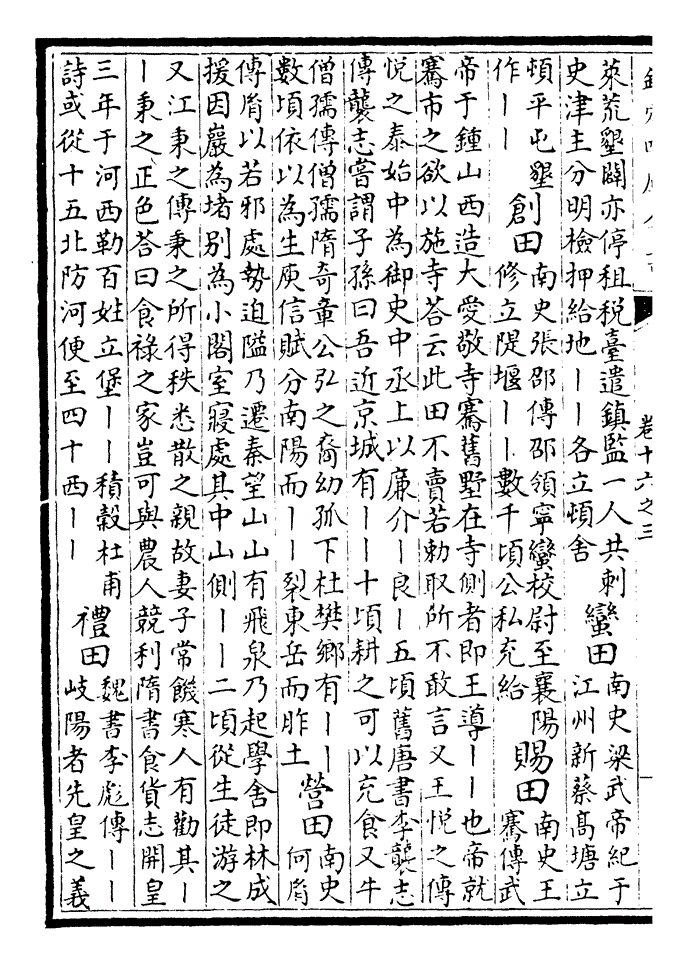 卷十六之三
萊荒墾闢亦停租税臺遣鎮監一人共刺
史津主分明檢押給地丨丨各立頓舍
蠻田
南史梁武帝紀于
江州新蔡髙塘立
頓平屯墾
作丨丨
創田
南史張邵傳邵領寧蠻校尉至襄陽
修立隄堰丨丨數千頃公私充給
賜田
南史王
騫傳武
帝于鍾山西造大愛敬寺騫舊墅在寺側者即王導丨丨也帝就
騫市之欲以施寺荅云此田不賣若勅取所不敢言又王悅之傳
悅之泰始中為御史中丞上以廉介丨良丨五頃舊唐書李襲志
傳襲志嘗謂子孫曰吾近京城有丨丨十頃耕之可以充食又牛
僧孺傳僧孺隋奇章公弘之裔幼孤下杜樊鄉有丨丨
數頃依以為生庾信賦分南陽而丨丨裂東岳而胙土
營田
南史
何胤
傳胤以若邪處勢迫隘乃遷秦望山山有飛泉乃起學舍即林成
援因巖為堵别為小閤室寢處其中山側丨丨二頃從生徒游之
又江秉之傳秉之所得秩悉散之親故妻子常饑寒人有勸其丨
丨秉之正色荅曰食祿之家豈可與農人競利隋書食貨志開皇
三年于河西勒百姓立堡丨丨積穀杜甫
詩或從十五北防河便至四十西丨丨
禮田
魏書李彪傳丨丨
岐陽者先皇之義